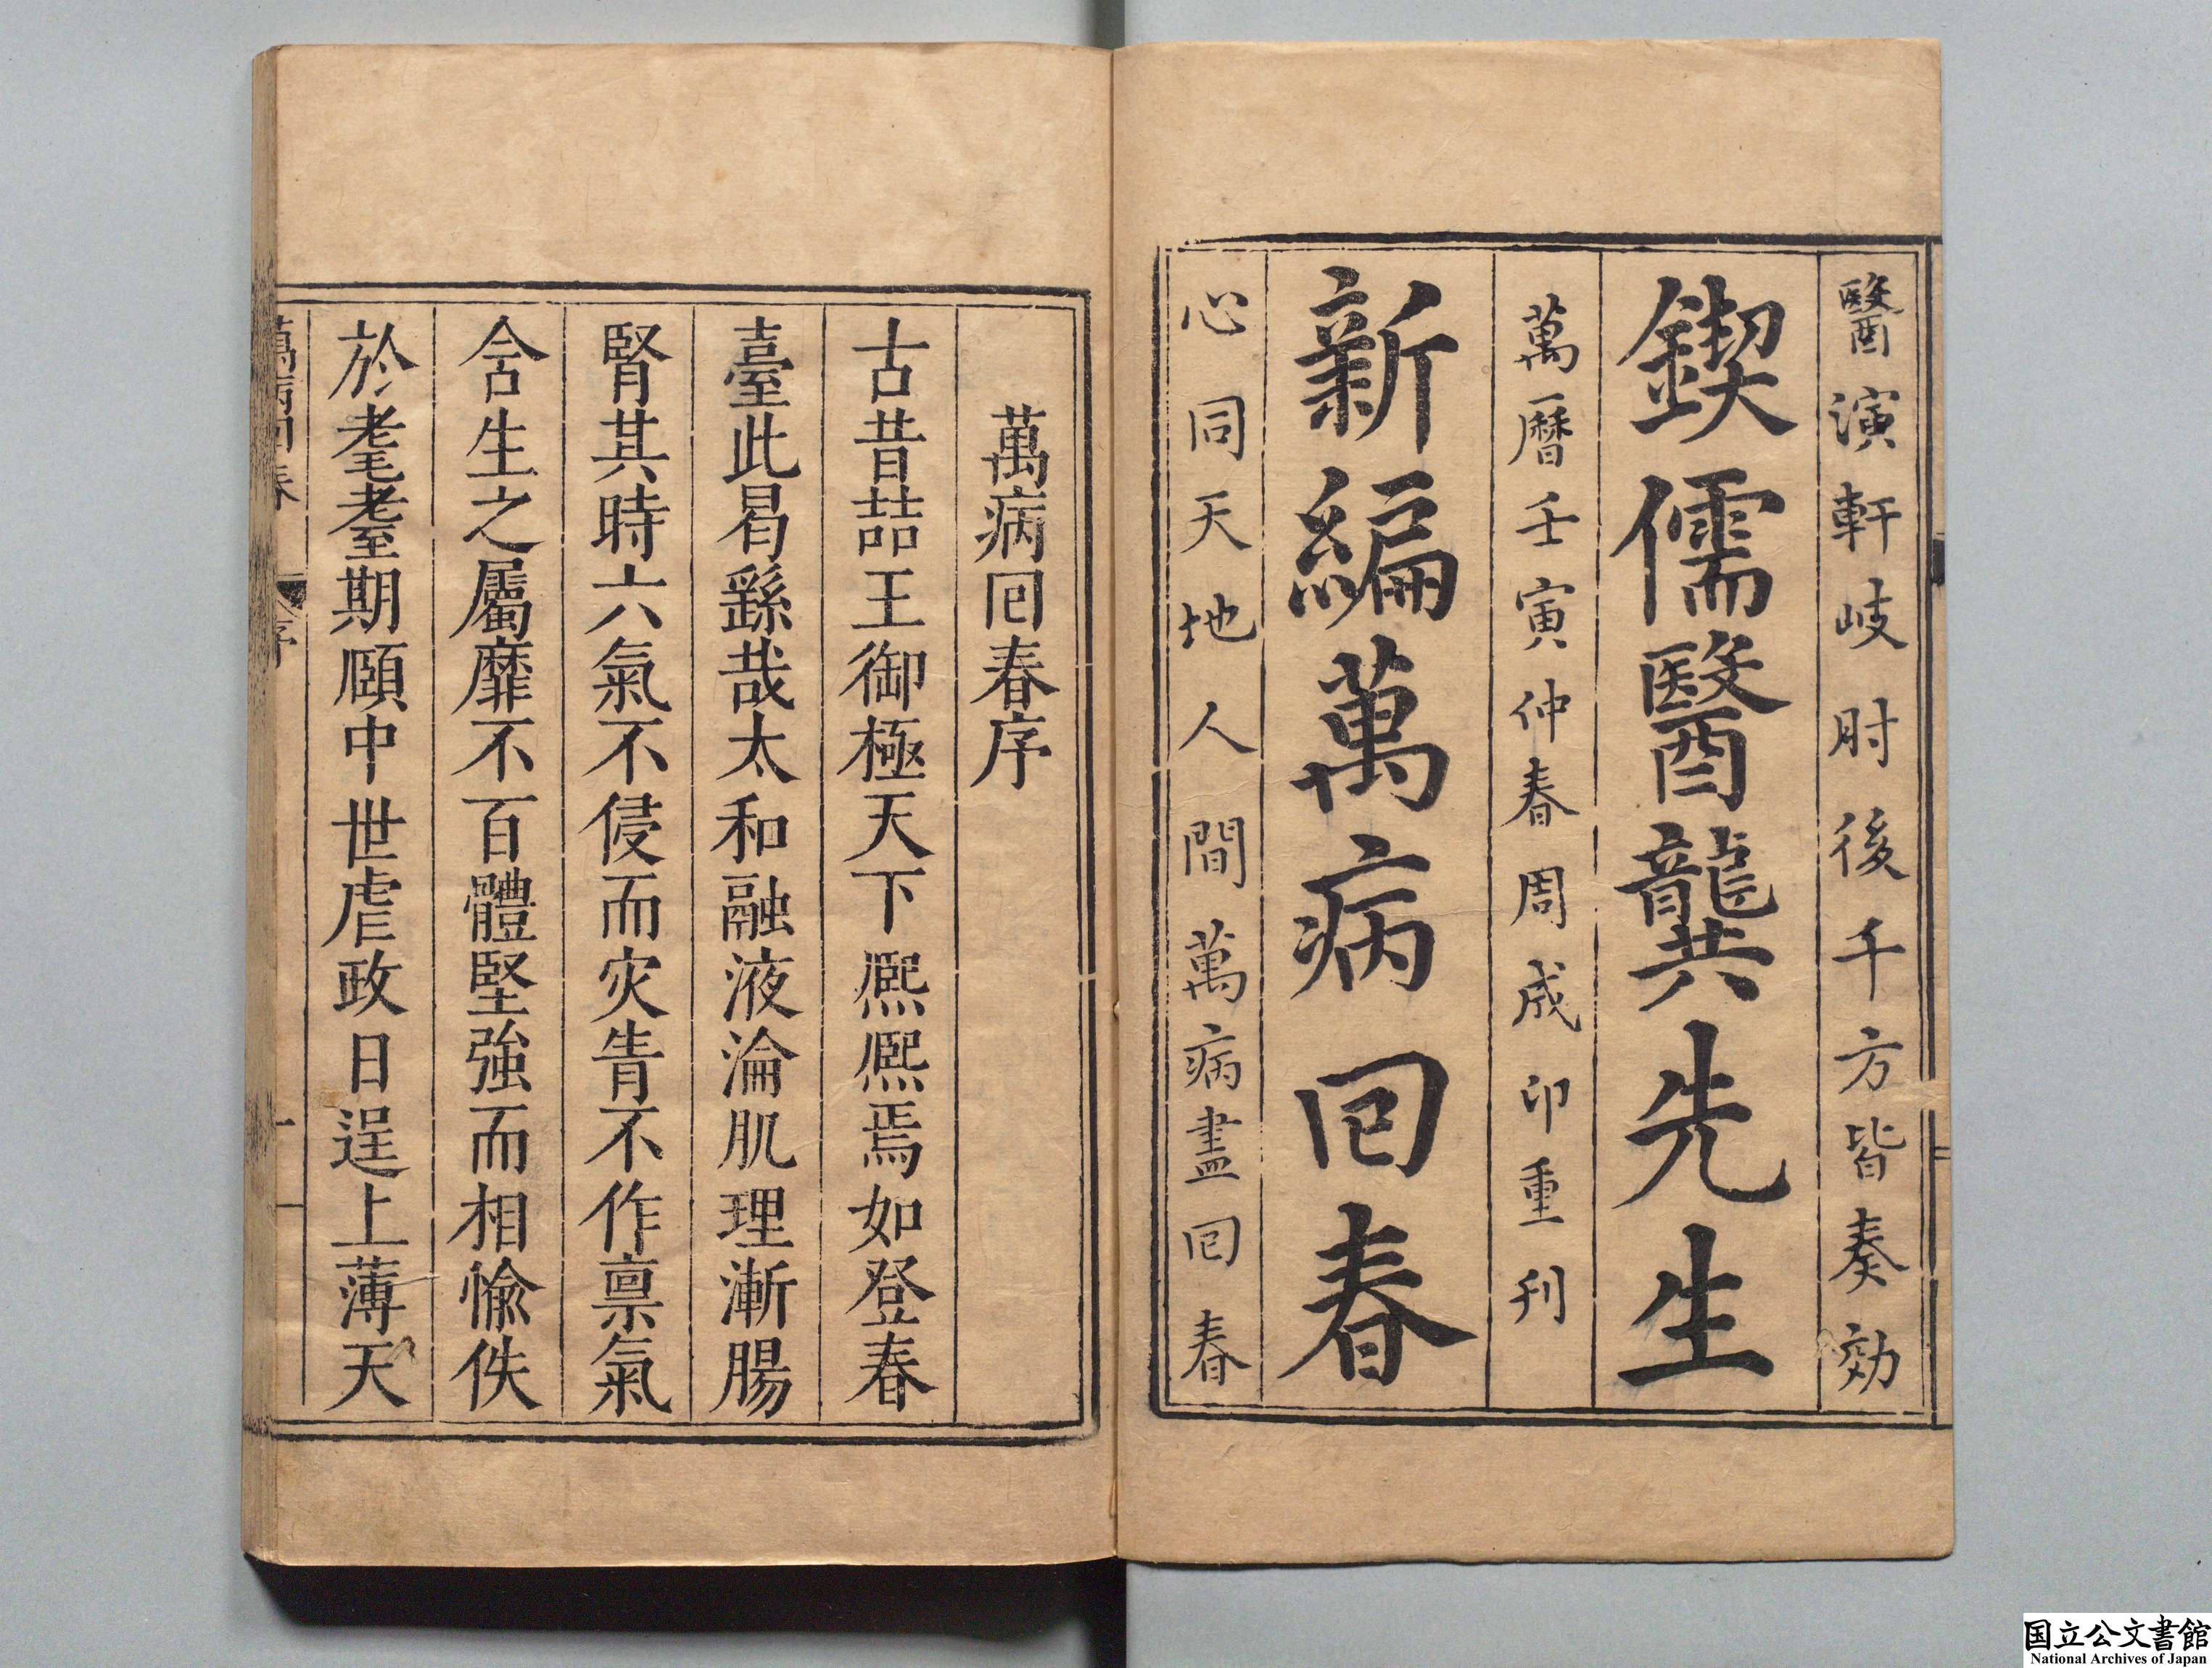 醫演軒岐肘後千方皆奏効
鍥儒醫龔先生
萬曆壬寅仲春周成卯重刊
新編萬病囘春
心同天地人間萬病盡囘春
萬病囘春序
古昔喆王御極天下熈熈焉如登春
臺此曷繇哉太和融液淪肌理漸腸
腎其時六氣不侵而灾眚不作禀氣
含生之屬靡不百體堅強而相愉佚
於耄耋期頤中世虐政日逞上薄天
萬病囘春
序
一
国立公文書館
National Archives of Japan